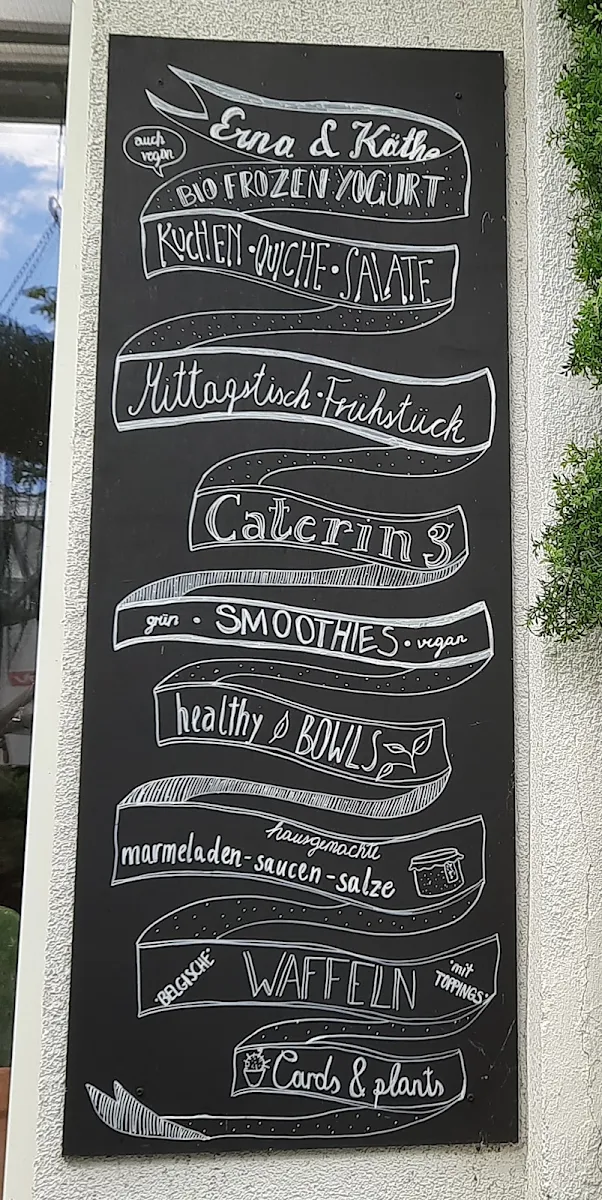 Erna & Käthe
auch
vegan
BIO FROZEN YOGURT
KUCHEN · QUICHE · SALATE
Mittagstisch · Frühstück
Catering
grün · SMOOTHIES · vegan
healthy BOWLS
hausgemachte
marmeladen-saucen-salze
"BELGISCHE" WAFFELN "mit
TOPPINGS"
Cards & plants